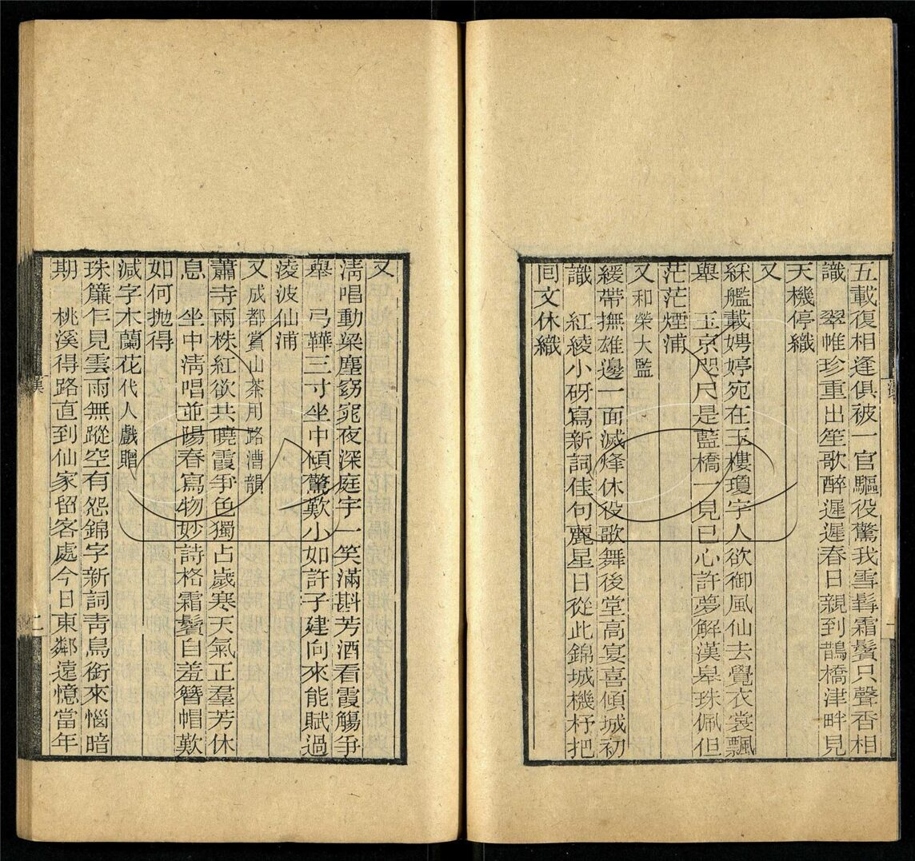 五載復相逢俱被一官驅役驚我雪髯霜鬢只聲香相
識　翠帷珍重出笙歌醉遲遲春日親到鵲橋津畔見
天機停織
又
綵艦載娉婷宛在玉樓瓊宇人欲御風仙去覺衣裳飄
舉　玉京咫尺是藍橋一見已心許夢解漢皋珠佩但
茫茫煙浦
又和榮大監
緩帶撫雄邊一面滅烽休役歌舞後堂高宴喜傾城初
識　紅綾小砑寫新詞佳句麗星日從此錦城機杼把
囘文休織
又
清唱動梁塵窈窕夜深庭宇一笑滿斟芳酒看霞觴爭
舉　弓鞾三寸坐中傾驚歎小如許子建向來能賦過
淩波仙浦
又成都賞山茶用路漕韻
蕭寺兩株紅欲共曉霞爭色獨占歲寒天氣正羣芳休
息　坐中清唱並陽春寫物妙詩格霜鬢自羞簪帽歎
如何抛得
減字木蘭花代人戲贈
珠簾乍見雲雨無蹤空有怨錦字新詞靑鳥銜來惱暗
期　桃溪得路直到仙家留客處今日東鄰遠憶當年